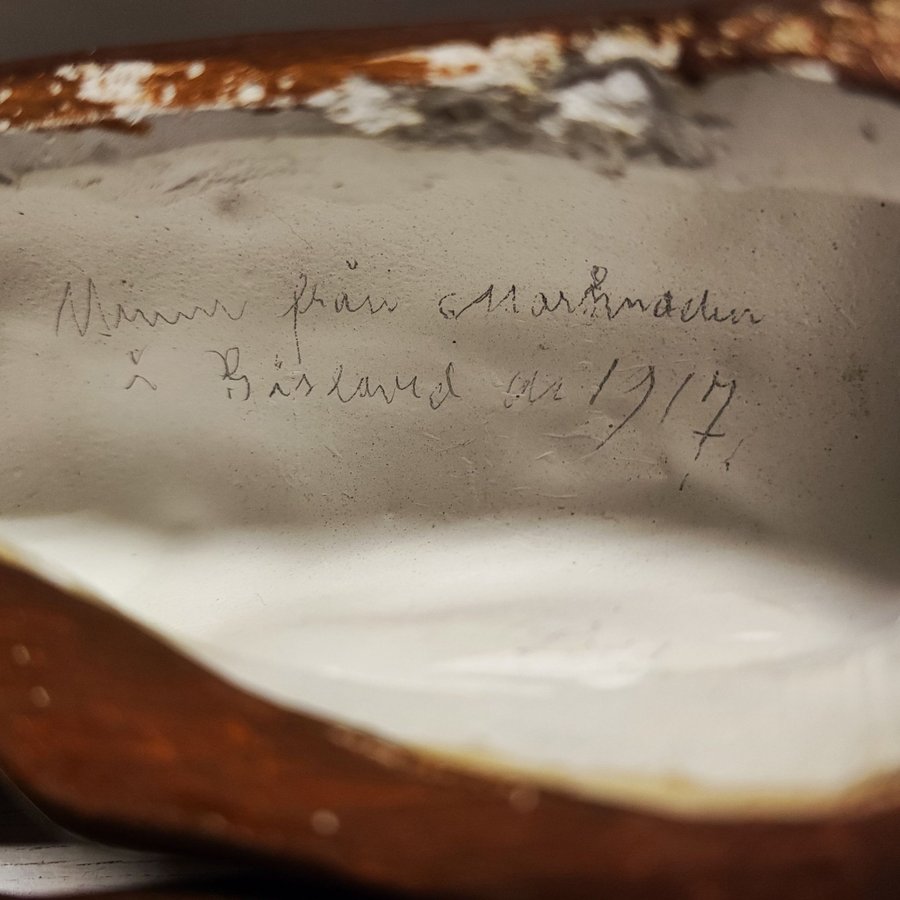 Minne från Marknaden
i Gislaved år 1917